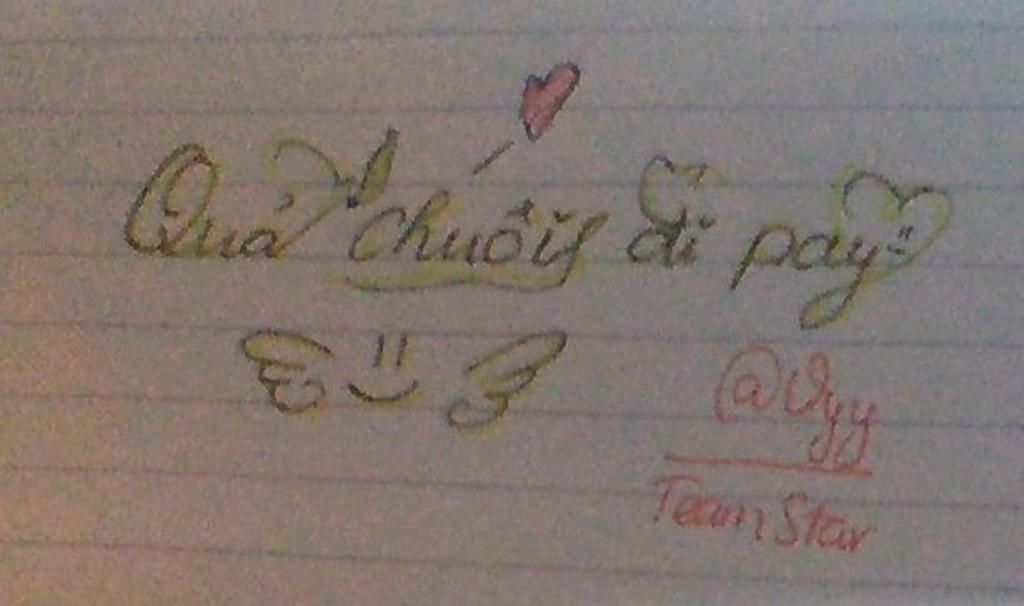 Quả chuối đi pay
@Vyy
Team Star